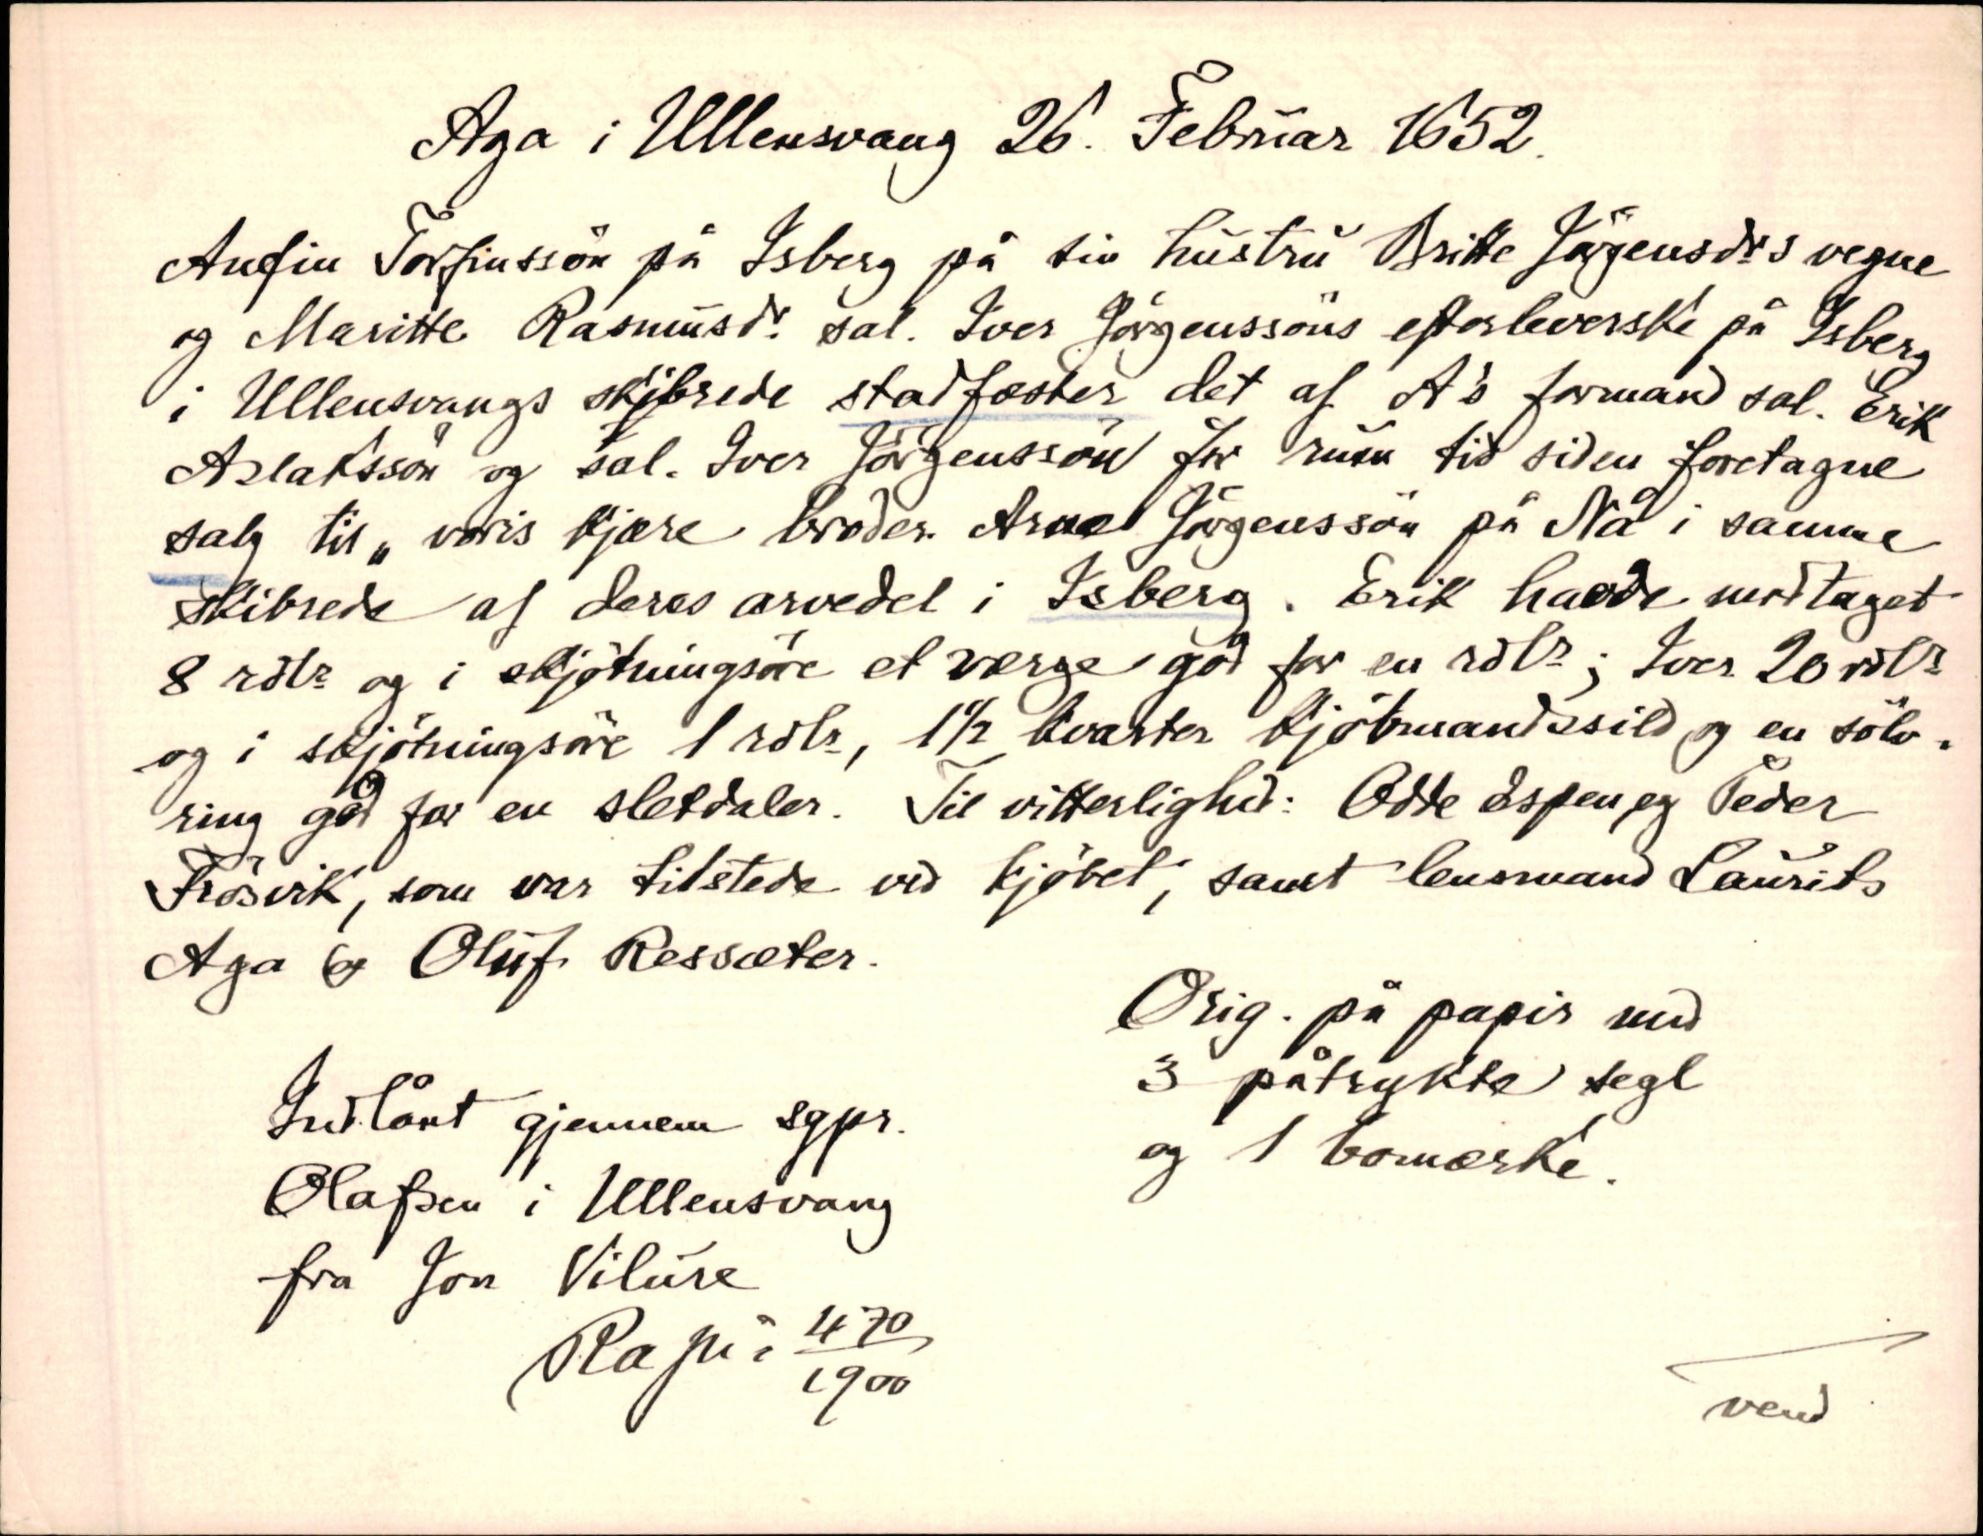 Aga i Ullensvang 26. Februar 1652.
Anfin Torfinssön på Isberg på sin hustru Britte Jörgensdrs vegne
og Maritte Rasmusdr. sal. Iver Jörgenssöns efterleverske på Isberg
i Ullensvangs skibrede stadfæster det af A's formand sal. Erik
Aslakssön og sal. Iver Jörgenssön for rum tid siden foretagne
salg til „voris kjære broder Arne Jörgenssön på Nå i samme
skibrede af deres arvedel i Isberg. Erik havde modtaget
8 rdlr og i skjötningsöre et værge god for en rdlr; Iver 20 rdlr
og i skjötningsöre 1 rdlr, 1 1/2 kvarter kjöbmandssild og en sölv-
ring god for en sletdaler. Til vitterlighed: Odde Espen og Peder
Frösvik, som var tilstede ved kjöbet, samt lensmand Laurits
Aga og Oluf Ressæter.
Orig. på papir med
3 påtrykte segl
og 1 bomærke.
Indlånt gjennem sgpr.
Olafsen i Ullensvang
fra Jon Vilure
Ra pk: 470/1900
vend